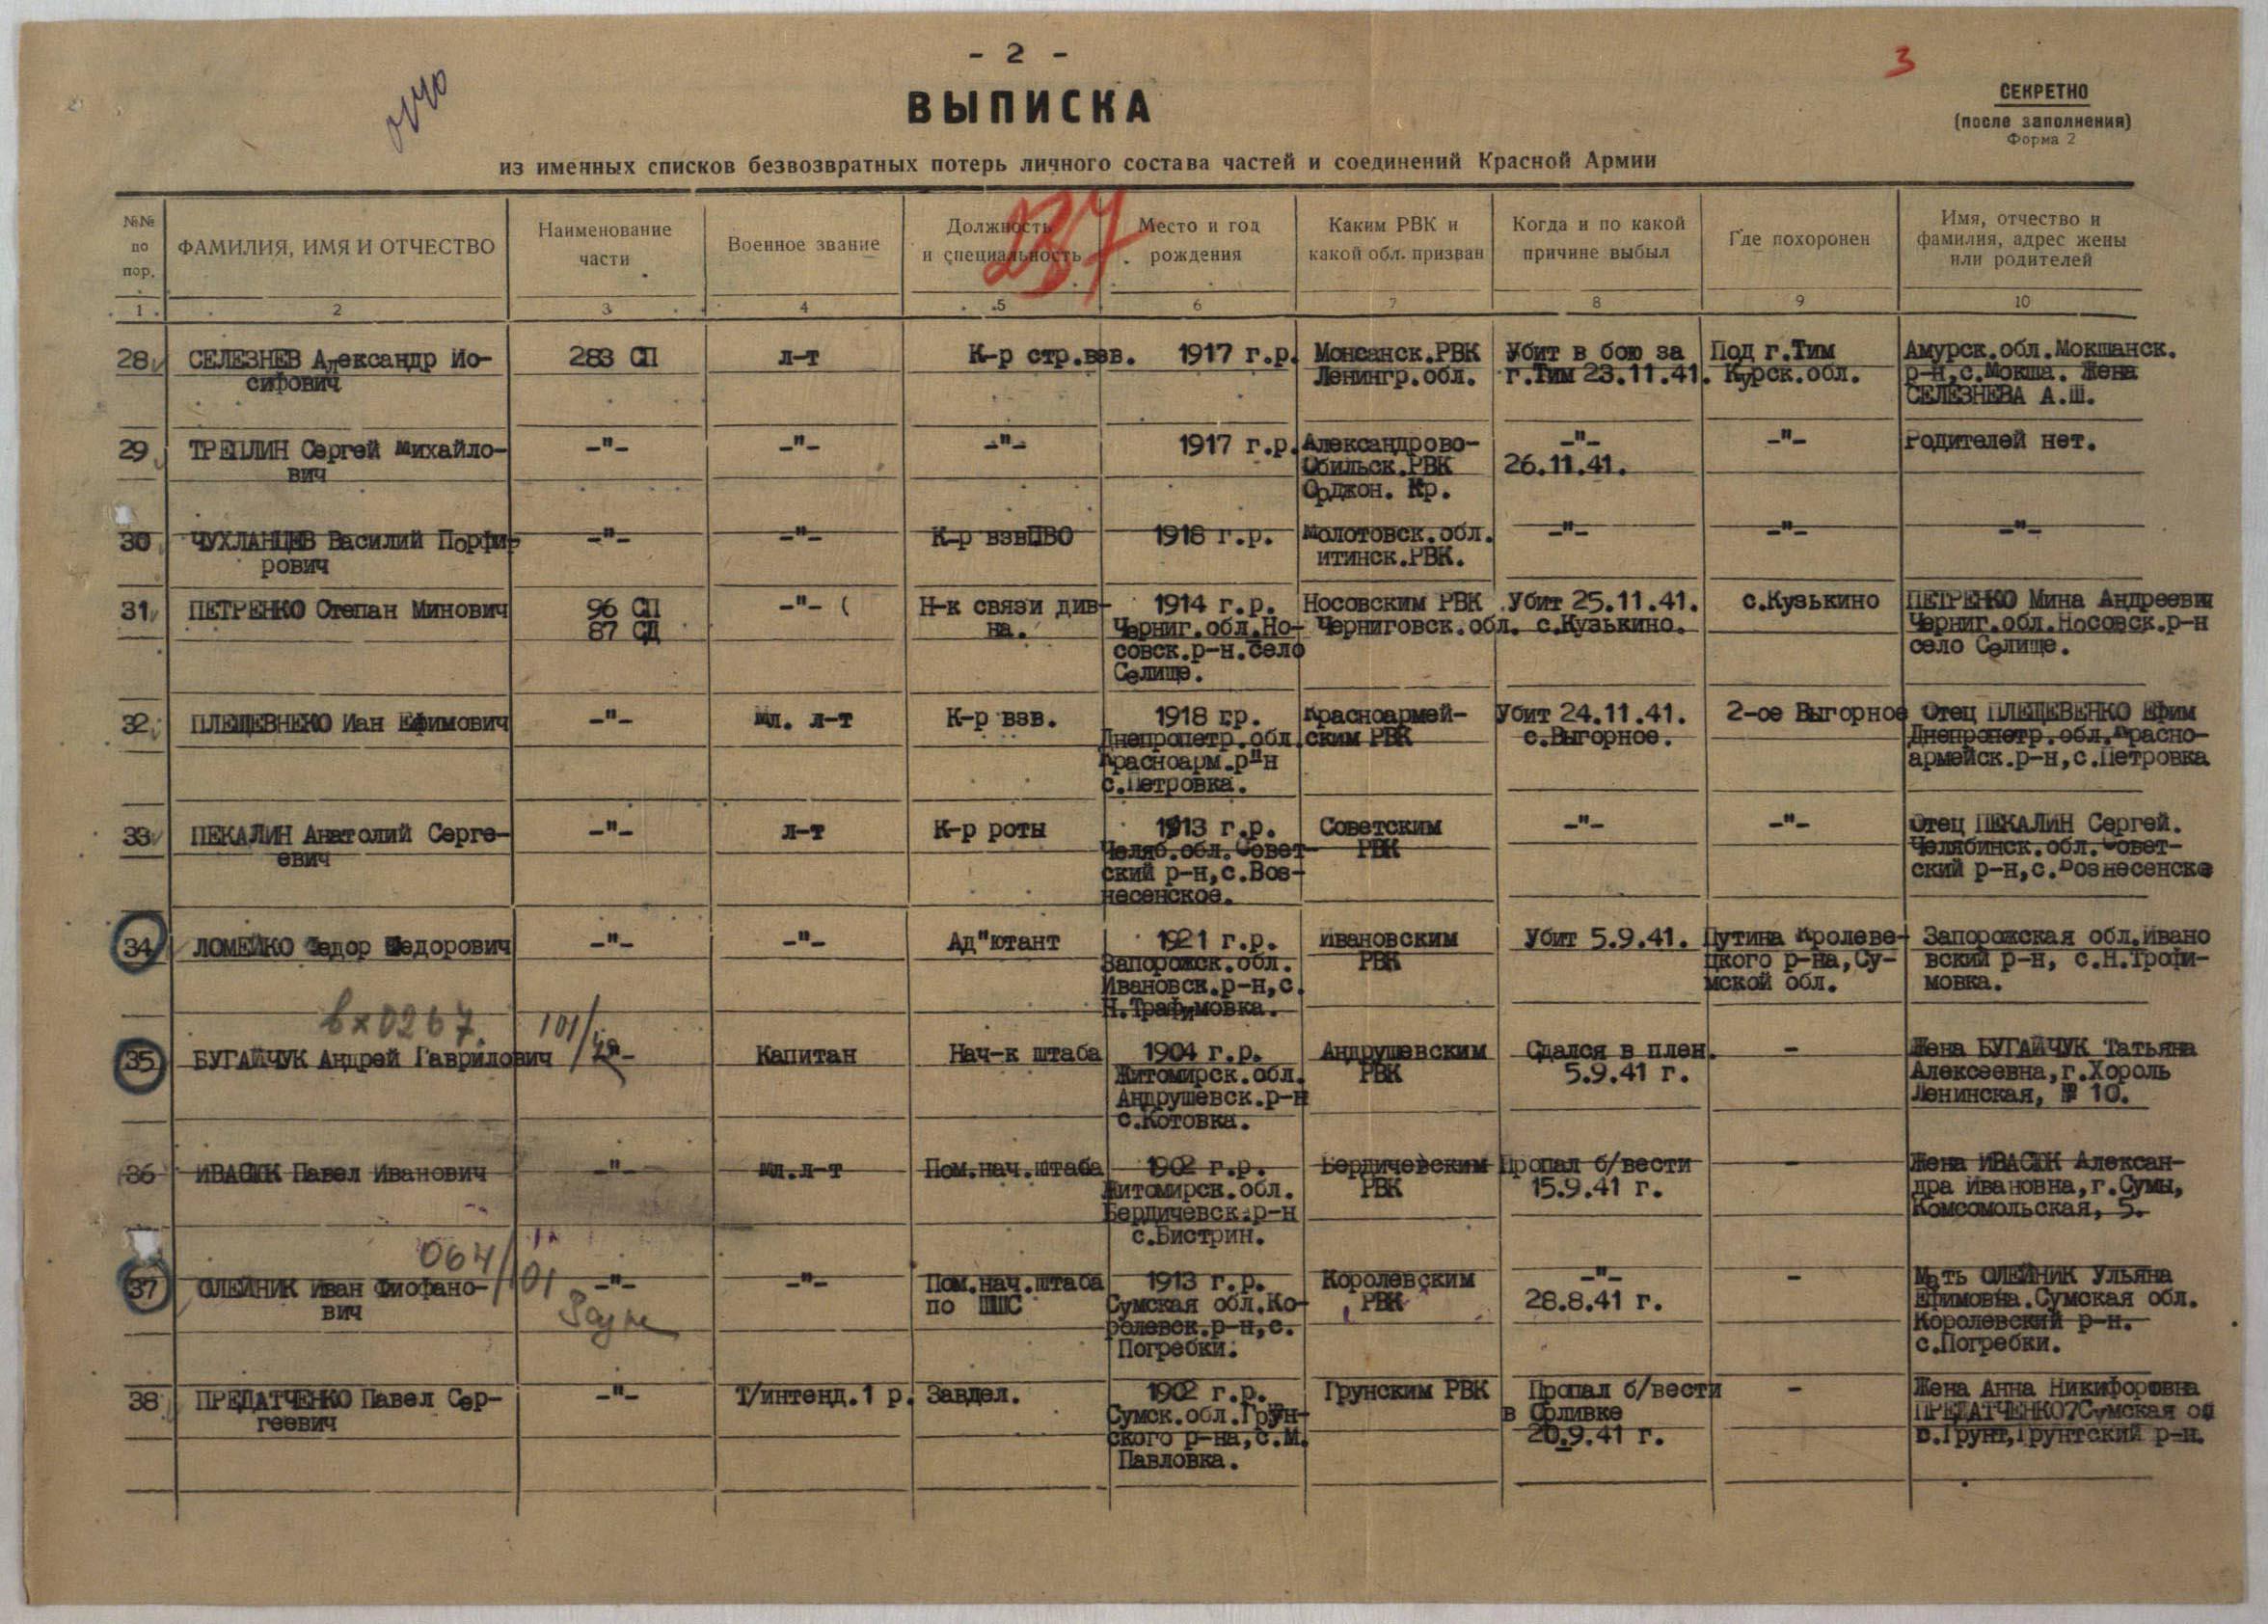 - 2 -
3
ВЫПИСКА
СЕКРЕТНО
(после заполнения)
Форма 2
из именных списков безвозвратных потерь личного состава частей и соединений Красной Армии
237
№№ по пор.
ФАМИЛИЯ, ИМЯ И ОТЧЕСТВО
Наименование части
Военное звание
Должность и специальность
Место и год рождения
Каким РВК и какой обл. призван
Когда и по какой причине выбыл
Где похоронен
Имя, отчество и фамилия, адрес жены или родителей
1 2 3 4 5 6 7 8 9 10
28 СЕЛЕЗНЕВ Александр Ио- 283 СП л-т К-р стр.взв. 1917 г.р. Монсанск.РВК Убит в бою за Под г.Тим Амурск.обл.Мокшанск.
сифович Ленингр.обл. г.Тим 23.11.41. Курск.обл. р-н,с.Мокша. Жена
СЕЛЕЗНЕВА А.Ш.
29 ТРЕПЛИН Сергей Михайло- -"- -"- -"- 1917 г.р. Александрово- -"- -"- Родителей нет.
вич Обильск.РВК 26.11.41.
Орджон. Кр.
30 ЧУХЛАНЦЕВ Василий Порфи- -"- -"- К-р взвПВО 1918 г.р. Молотовск.обл. -"- -"- -"-
рович итинск.РВК.
31 ПЕТРЕНКО Степан Минович 96 СП -"- ( Н-к связи див- 1914 г.р. Носовским РВК Убит 25.11.41. с.Кузькино ПЕТРЕНКО Мина Андреевич
87 СД на. Черниг.обл.Но- Черниговск.обл. с.Кузькино. Черниг.обл.Носовск.р-н
совск.р-н.село село Селище.
Селище.
32 ПЛЕЩЕВНЕКО Иан Ефимович -"- мл. л-т К-р взв. 1918 г.р. Красноармей- Убит 24.11.41. 2-ое Выгорное Отец ПЛЕЩЕВЕНКО Ефим
Днепропетр.обл. ским РВК с.Выгорное. Днепропетр.обл.Красно-
Красноарм.р"н армейск.р-н,с.Петровка
с.Петровка.
33 ПЕКАЛИН Анатолий Серге- -"- л-т К-р роты 1913 г.р. Советским -"- -"- Отец ПЕКАЛИН Сергей.
евич Челяб.обл.Совет- РВК Челябинск.обл.Совет-
ский р-н,с.Воз- ский р-н,с.Вознесенске
несенское.
34 ЛОМЕЙКО Федор Федорович -"- -"- Ад"ютант 1921 г.р. Ивановским Убит 5.9.41. Путина Кролеве- Запорожская обл.Ивано
Запорожск.обл. РВК цкого р-на,Су- вский р-н, с.Н.Трофи-
Ивановск.р-н,с. мской обл. мовка.
Н.Трафимовка.
вх0267. 101/
35 БУГАЙЧУК Андрей Гаврилович -"- Капитан Нач-к штаба 1904 г.р. Андрушевским Сдался в плен. - Жена БУГАЙЧУК Татьяна
Житомирск.обл. РВК 5.9.41 г. Алексеевна,г.Хороль
Андрушевск.р-н Ленинская, № 10.
с.Котовка.
36 ИВАСЮК Павел Иванович -"- мл.л-т Пом.нач.штаба 1902 г.р. Бердичевским Пропал б/вести - Жена ИВАСЮК Алексан-
Житомирск.обл. РВК 15.9.41 г. дра Ивановна,г.Сумы,
Бердичевск.р-н Комсомольская, 5.
с.Бистрин.
064/01
37 ОЛЕЙНИК Иван Фиофано- -"- -"- Пом.нач.штаба 1913 г.р. Королевским -"- - Мать ОЛЕЙНИК Ульяна
вич по ШШС Сумская обл.Ко- РВК 28.8.41 г. Ефимовна.Сумская обл.
ролевск.р-н,с. Королевский р-н.
Погребки. с.Погребки.
38 ПРЕДАТЧЕНКО Павел Сер- -"- Т/интенд.1 р. Завдел. 1902 г.р. Грунским РВК Пропал б/вести - Жена Анна Никифоровна
геевич Сумск.обл.Грун- в Оливке ПРЕДАТЧЕНКО?Сумская об
ского р-на,с.М. 20.9.41 г. с.Грунт,Грунтский р-н.
Павловка.